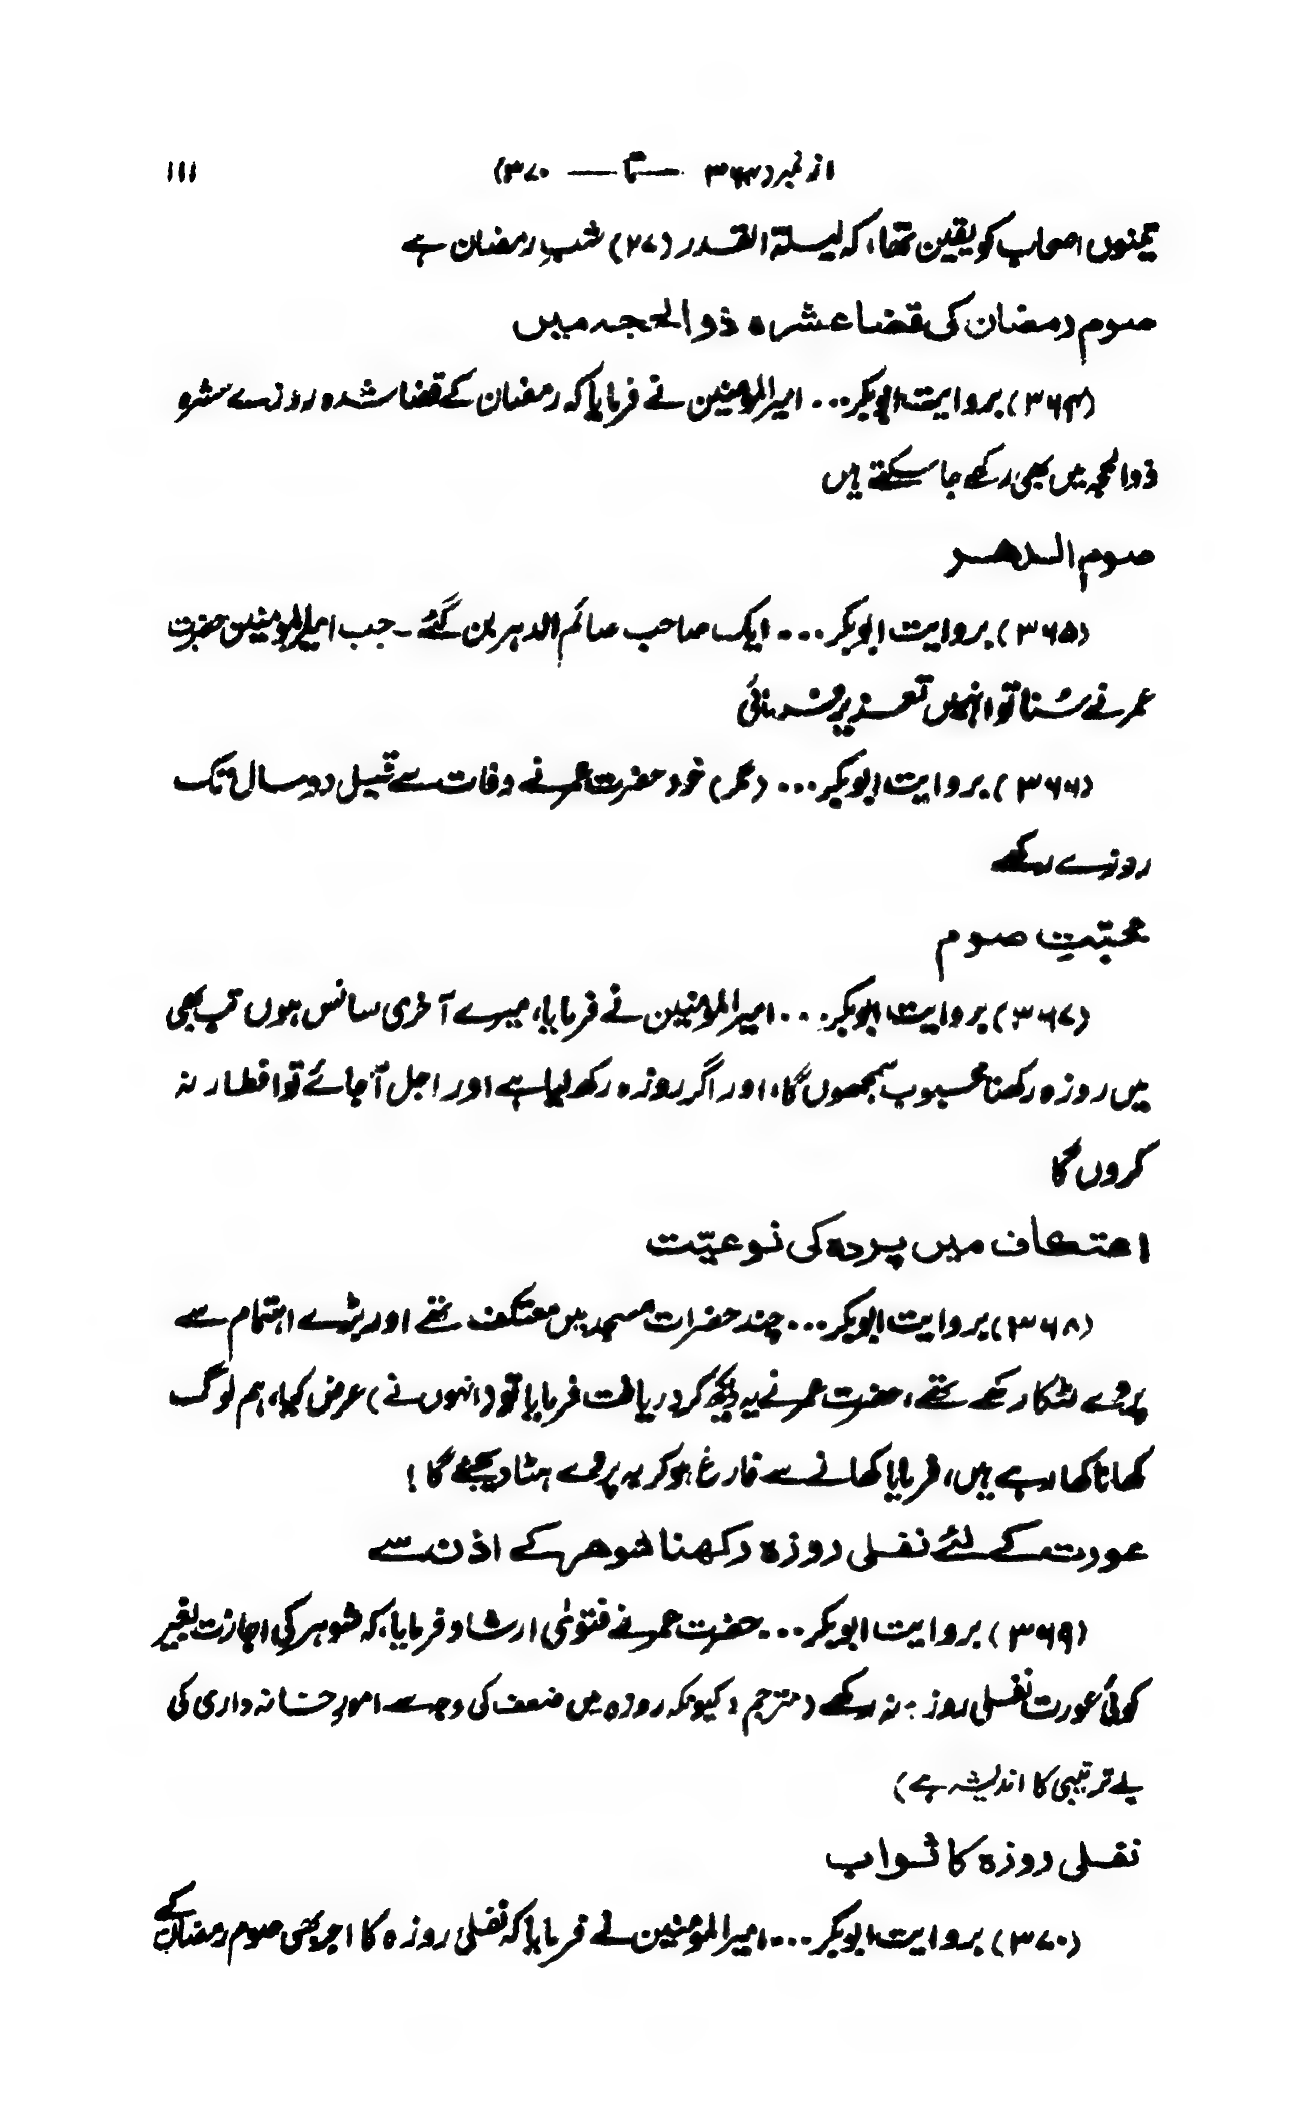 از نمبر (۳۶۴ — تا — ۳۷۰) ۱۱۱
تینوں اصحاب کو یقین تھا، کہ لیلۃ القدر (۲۷) شبِ رمضان ہے
صوم رمضان کی قضا عشرہ ذوالحجہ میں
(۳۶۴) بروایت ابوبکر... امیر المومنین نے فرمایا کہ رمضان کے قضا شدہ روزے عشرہ
ذوالحجہ میں بھی رکھے جا سکتے ہیں
صوم الدھر
(۳۶۵) بروایت ابوبکر... ایک صاحب صائم الدہر بن گئے۔ جب امیر المومنین حضرت
عمر نے سُنا تو انہیں تعزیر فرمائی
(۳۶۶) بروایت ابوبکر... (مگر) خود حضرت عمر نے وفات سے قبل دو سال تک
روزے رکھے
محبّتِ صوم
(۳۶۷) بروایت ابوبکر... امیر المومنین نے فرمایا، میرے آخری سانس ہوں تب بھی
میں روزہ رکھنا محبوب سمجھوں گا، اور اگر روزہ رکھ لیا ہے اور اجل آجائے تو افطار نہ
کروں گا
اعتکاف میں پردہ کی نوعیّت
(۳۶۸) بروایت ابوبکر... چند حضرات مسجد میں معتکف تھے اور بڑے اہتمام سے
پردے لٹکا رکھے تھے، حضرت عمر نے یہ دیکھ کر دریافت فرمایا تو (انہوں نے) عرض کیا، ہم لوگ
کھانا کھا رہے ہیں، فرمایا کھانے سے فارغ ہو کر یہ پردے ہٹا دیجئے گا!
عورت کے لئے نفلی روزہ رکھنا شوہر کے اذن سے
(۳۶۹) بروایت ابوبکر... حضرت عمر نے فتویٰ ارشاد فرمایا، کہ شوہر کی اجازت بغیر
کوئی عورت نفلی روزہ نہ رکھے (مترجم: کیونکہ روزہ میں ضعف کی وجہ سے امورِ خانہ داری کی
بے ترتیبی کا اندیشہ ہے)
نفلی روزہ کا ثواب
(۳۷۰) بروایت ابوبکر... امیر المومنین نے فرمایا کہ نفلی روزہ کا اجر بھی صوم رمضان کے